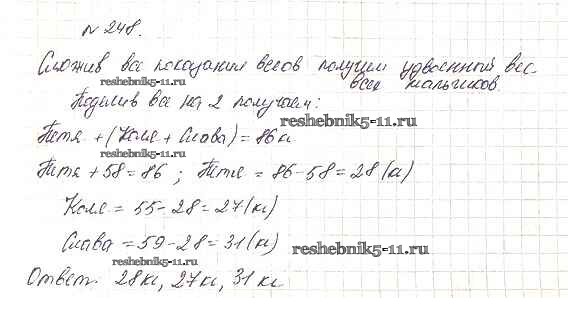 № 248.
Сложив все показания весов получим удвоенный вес
всех мальчиков.
reshebnik5-11.ru
Поделив все на 2 получаем:
reshebnik5-11.ru
Петя + (Коля + Слава) = 86 кг
Петя + 58 = 86 ; Петя = 86 - 58 = 28 (кг)
Коля = 55 - 28 = 27 (кг)
reshebnik5-11.ru
Слава = 59 - 28 = 31 (кг)
reshebnik5-11.ru
reshebnik5-11.ru
Ответ: 28 кг, 27 кг, 31 кг